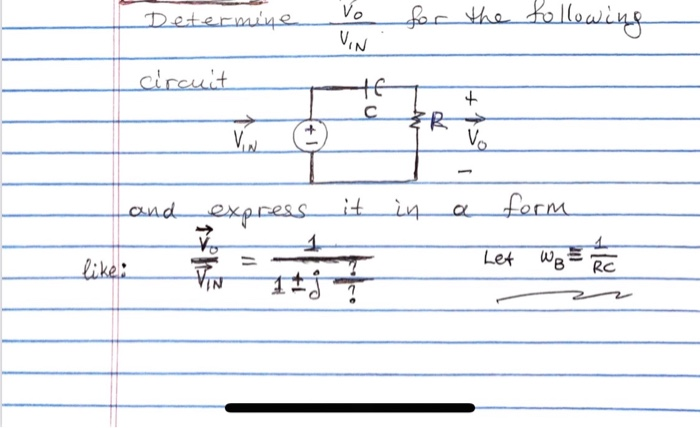 Determine Vo/VIN for the following
circuit
C
+
VIN
+
-
R
Vo
-
and express it in a form
like: Vo/VIN = 1/(1 ± j ?/?) Let ωB ≡ 1/RC